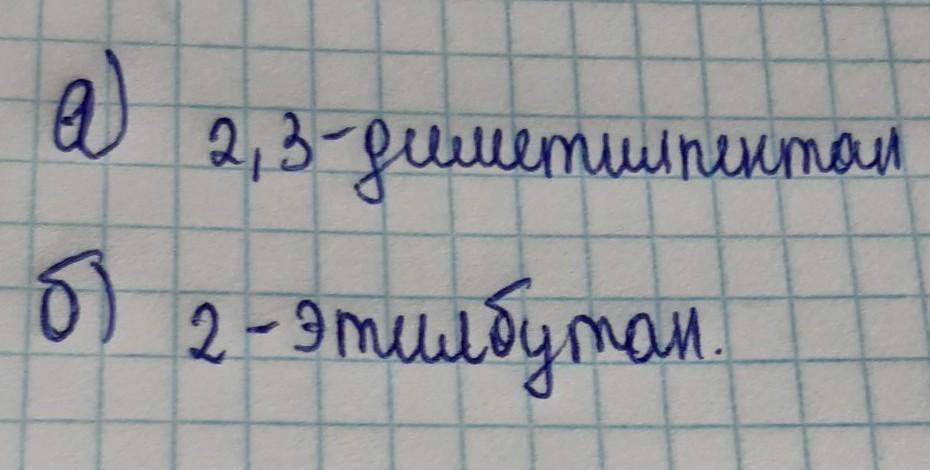 а) 2,3-диметилпентан
б) 2-этилбутан.